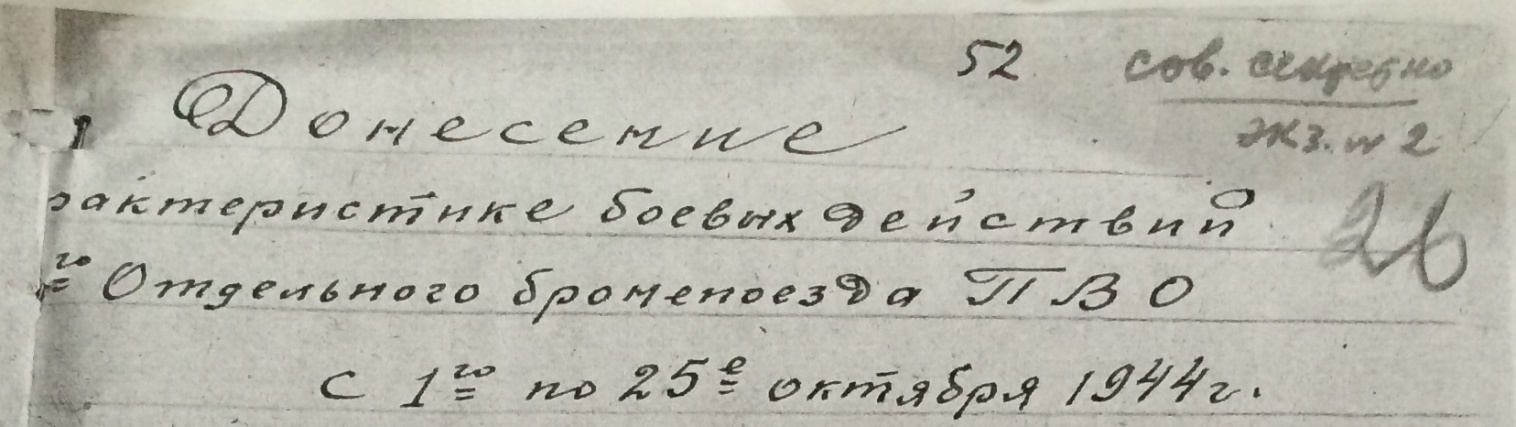 52 сов. секретно
Донесение экз. № 2
рактеристике боевых действий 26
го Отдельного бронепоезда ПВО
с 1го по 25е октября 1944г.